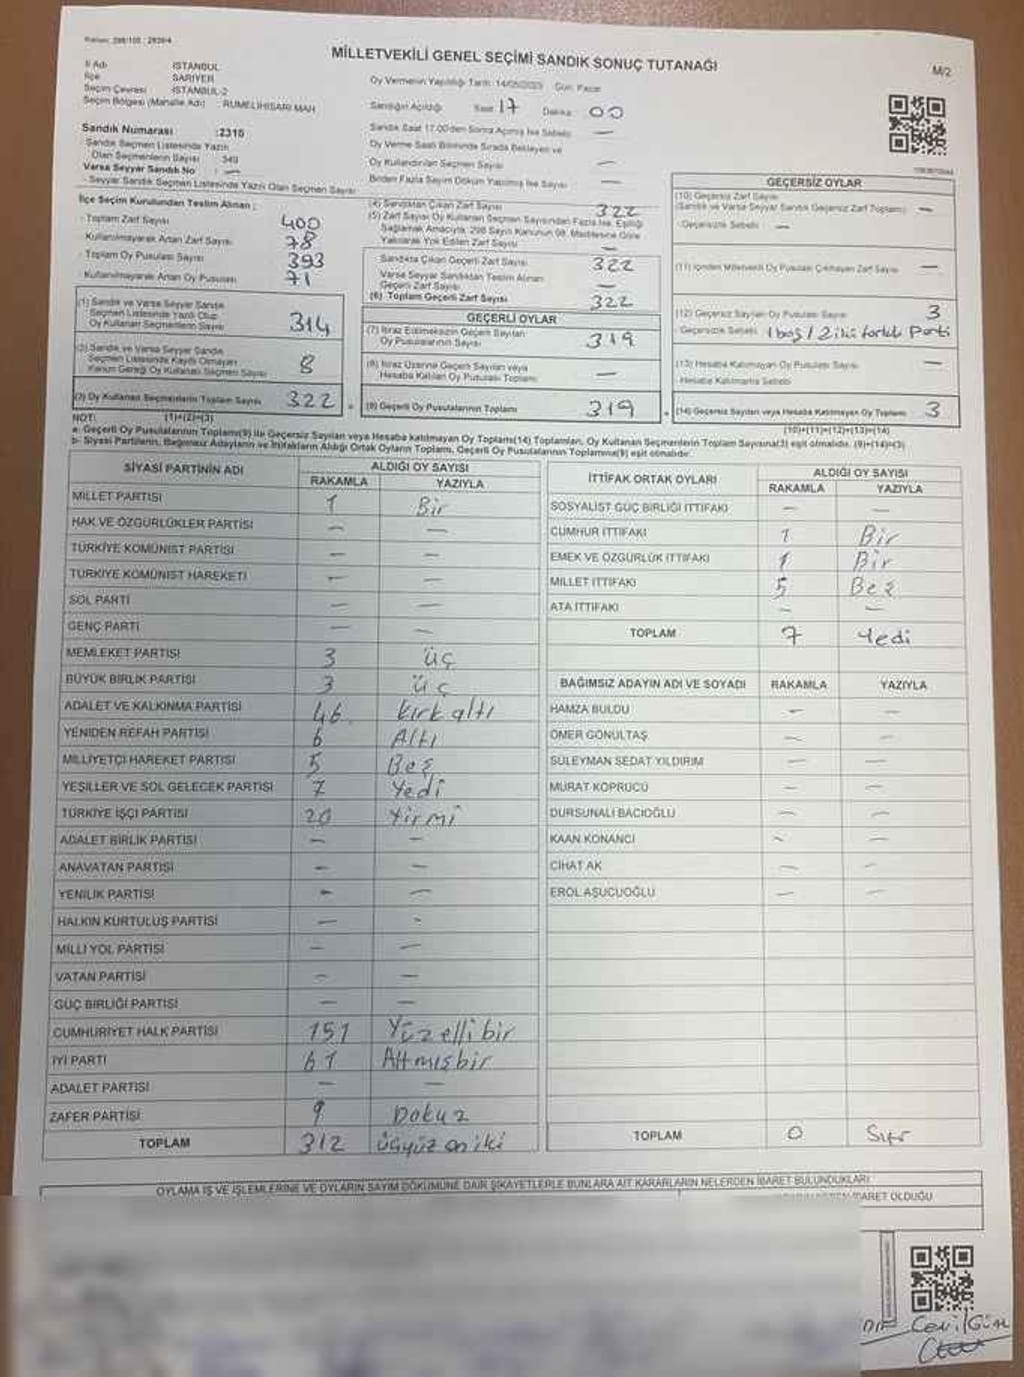 MİLLETVEKİLİ GENEL SEÇİMİ SANDIK SONUÇ TUTANAĞI
M/2
İl Adı İSTANBUL
İlçe SARIYER
Seçim Çevresi İSTANBUL-2
Seçim Bölgesi (Mahalle Adı) : RUMELİHİSARI MAH
Oy Vermenin Yapıldığı Tarih: 14/05/2023 Gün: Pazar
Sandığın Açıldığı Saat 17 Dakika 00
Sandık Saat 17.00'den Sonra Açılmış İse Sebebi —
Sandık Numarası :2315
Sandık Seçmen Listesinde Yazılı
Olan Seçmenlerin Sayısı 349
Varsa Seyyar Sandık No : —
Seyyar Sandık Seçmen Listesinde Yazılı Olan Seçmen Sayısı
Oy Verme Saati Bitiminde Sırada Bekleyen ve
Oy Kullandırılan Seçmen Sayısı —
Birden Fazla Sayım Döküm Yapılmış İse Sayısı —
İlçe Seçim Kurulundan Teslim Alınan :
Toplam Zarf Sayısı 400
Kullanılmayarak Artan Zarf Sayısı 78
Toplam Oy Pusulası Sayısı 393
Kullanılmayarak Artan Oy Pusulası 71
(1) Sandık ve Varsa Seyyar Sandık
Seçmen Listesinde Yazılı Olup
Oy Kullanan Seçmenlerin Sayısı 314
(2) Sandık ve Varsa Seyyar Sandık
Seçmen Listesinde Kaydı Olmayan
Kanun Gereği Oy Kullanan Seçmen Sayısı 8
(3) Oy Kullanan Seçmenlerin Toplam Sayısı 322
(1)+(2)=(3)
(4) Sandıktan Çıkan Zarf Sayısı 322
(5) Zarf Sayısı Oy Kullanan Seçmen Sayısından Fazla İse, Eşitliği
Sağlamak Amacıyla, 298 Sayılı Kanunun 98. Maddesine Göre
Yakılarak Yok Edilen Zarf Sayısı —
Sandıkta Çıkan Geçerli Zarf Sayısı 322
Varsa Seyyar Sandıktan Teslim Alınan
Geçerli Zarf Sayısı —
(6) Toplam Geçerli Zarf Sayısı 322
GEÇERLİ OYLAR
(7) İtiraz Edilmeksizin Geçerli Sayılan
Oy Pusulalarının Sayısı 319
(8) İtiraz Üzerine Geçerli Sayılan veya
Hesaba Katılan Oy Pusulası Toplamı —
(9) Geçerli Oy Pusulalarının Toplamı 319
GEÇERSİZ OYLAR
(10) Geçersiz Zarf Sayısı
(Sandık ve Varsa Seyyar Sandık Geçersiz Zarf Toplamı) —
Geçersizlik Sebebi —
(11) İçinden Milletvekili Oy Pusulası Çıkmayan Zarf Sayısı —
(12) Geçersiz Sayılan Oy Pusulası Sayısı 3
Geçersizlik Sebebi 1 boş / 2 iki farklı Parti
(13) Hesaba Katılmayan Oy Pusulası Sayısı —
Hesaba Katılmama Sebebi
(14) Geçersiz Sayılan veya Hesaba Katılmayan Oy Toplamı 3
(10)+(11)+(12)+(13)=(14)
NOT:
a- Geçerli Oy Pusulalarının Toplamı(9) ile Geçersiz Sayılan veya Hesaba katılmayan Oy Toplamı(14) Toplamları, Oy Kullanan Seçmenlerin Toplam Sayısına(3) eşit olmalıdır. (9)+(14)=(3)
b- Siyasi Partilerin, Bağımsız Adayların ve İttifakların Aldığı Ortak Oyların Toplamı, Geçerli Oy Pusulalarının Toplamına(9) eşit olmalıdır.
SİYASİ PARTİNİN ADI ALDIĞI OY SAYISI
RAKAMLA YAZIYLA
MİLLET PARTİSİ 1 Bir
HAK VE ÖZGÜRLÜKLER PARTİSİ — —
TÜRKİYE KOMÜNİST PARTİSİ — —
TÜRKİYE KOMÜNİST HAREKETİ — —
SOL PARTİ — —
GENÇ PARTİ — —
MEMLEKET PARTİSİ 3 üç
BÜYÜK BİRLİK PARTİSİ 3 üç
ADALET VE KALKINMA PARTİSİ 46 kırk altı
YENİDEN REFAH PARTİSİ 6 Altı
MİLLİYETÇİ HAREKET PARTİSİ 5 Beş
YEŞİLLER VE SOL GELECEK PARTİSİ 7 Yedi
TÜRKİYE İŞÇİ PARTİSİ 20 Yirmi
ADALET BİRLİK PARTİSİ — —
ANAVATAN PARTİSİ — —
YENİLİK PARTİSİ — —
HALKIN KURTULUŞ PARTİSİ — -
MİLLİ YOL PARTİSİ — —
VATAN PARTİSİ — —
GÜÇ BİRLİĞİ PARTİSİ — —
CUMHURİYET HALK PARTİSİ 151 Yüz elli bir
İYİ PARTİ 61 Altmışbir
ADALET PARTİSİ — —
ZAFER PARTİSİ 9 Dokuz
TOPLAM 312 üçyüz on iki
İTTİFAK ORTAK OYLARI ALDIĞI OY SAYISI
RAKAMLA YAZIYLA
SOSYALİST GÜÇ BİRLİĞİ İTTİFAKI — —
CUMHUR İTTİFAKI 1 Bir
EMEK VE ÖZGÜRLÜK İTTİFAKI 1 Bir
MİLLET İTTİFAKI 5 Beş
ATA İTTİFAKI — —
TOPLAM 7 Yedi
BAĞIMSIZ ADAYIN ADI VE SOYADI RAKAMLA YAZIYLA
HAMZA BULDU — —
ÖMER GÖNÜLTAŞ — —
SÜLEYMAN SEDAT YILDIRIM — —
MURAT KÖPRÜCÜ — —
DURSUNALİ BACIOĞLU — —
KAAN KONANCI — —
CİHAT AK — —
EROL AŞUCUOĞLU — —
TOPLAM 0 Sıfır
OYLAMA İŞ VE İŞLEMLERİNE VE OYLARIN SAYIM DÖKÜMÜNE DAİR ŞİKAYETLERLE BUNLARA AİT KARARLARIN NELERDEN İBARET BULUNDUKLARI
İBARET OLDUĞU